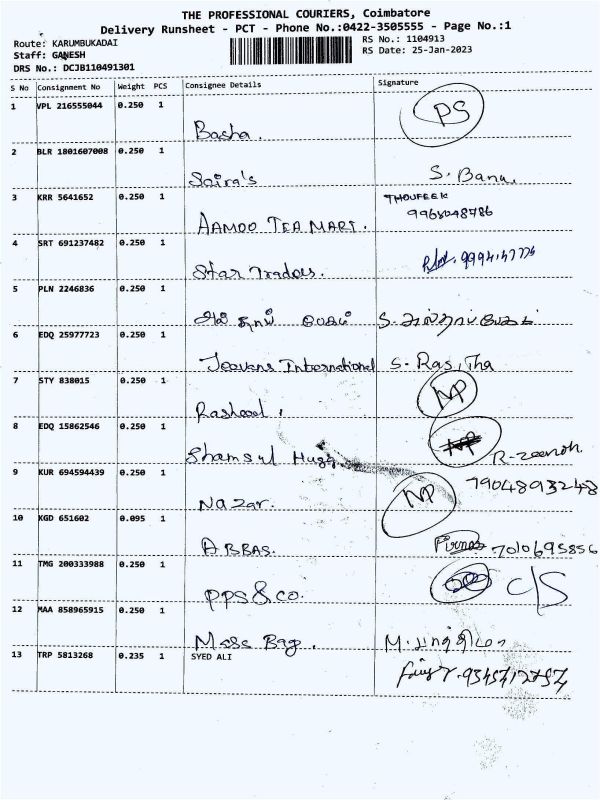 THE PROFESSIONAL COURIERS, Coimbatore
Delivery Runsheet - PCT - Phone No.:0422-3505555 - Page No.:1
Route: KARUMBUKADAI RS No.: 1104913
Staff: GANESH RS Date: 25-Jan-2023
DRS No.: DCJB110491301
S No Consignment No Weight PCS Consignee Details Signature
1 VPL 216555044 0.250 1
Basha. PS
2 BLR 1801607008 0.250 1
Saira's S. Banu.
3 KRR 5641652 0.250 1 THOUFEEK
AAMOO TEA MART. 9965048786
4 SRT 691237482 0.250 1
Star Traders.
5 PLN 2246836 0.250 1
6 EDQ 25977723 0.250 1
Jeevans International S. Rasitha
7 STY 838015 0.250 1
Rasheed. NP
8 EDQ 15862546 0.250 1
Shamsul Huq NP R-zeenath.
9 KUR 694594439 0.250 1 7904893248
Nazar. NP
10 KGD 651602 0.095 1
ABBAS. 7010695856
11 TMG 200333988 0.250 1
PPS & CO. C/S
12 MAA 858965915 0.250 1
Mass Bag. M.
13 TRP 5813268 0.235 1 SYED ALI